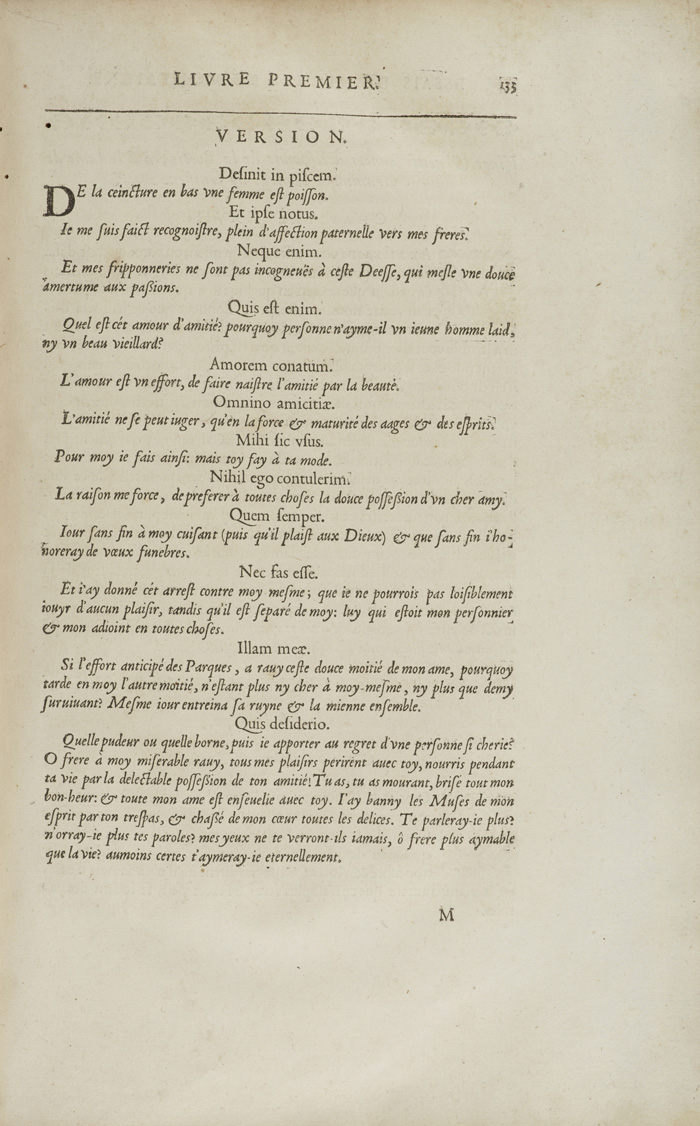 LIVRE PREMIER. 135
VERSION.
Desinit in piscem.
DE la ceincture en bas vne femme est poisson.
Et ipse notus.
Ie me suis faict recognoistre, plein d'affection paternelle vers mes freres.
Neque enim.
Et mes fripponneries ne sont pas incogneuës à ceste Deesse, qui mesle vne douce
amertume aux passions.
Quis est enim.
Quel est cét amour d'amitié? pourquoy personne n'ayme-il vn ieune homme laid,
ny vn beau vieillard?
Amorem conatum.
L'amour est vn effort, de faire naistre l'amitié par la beauté.
Omnino amicitiæ.
L'amitié ne se peut iuger, qu'en la force & maturité des aages & des esprits.
Mihi sic vsus.
Pour moy ie fais ainsi: mais toy fay à ta mode.
Nihil ego contulerim.
La raison me force, de preferer à toutes choses la douce possession d'vn cher amy.
Quem semper.
Iour sans fin à moy cuisant (puis qu'il plaist aux Dieux) & que sans fin i'ho-
noreray de vœux funebres.
Nec fas esse.
Et i'ay donné cét arrest contre moy mesme; que ie ne pourrois pas loisiblement
iouyr d'aucun plaisir, tandis qu'il est separé de moy: luy qui estoit mon personnier
& mon adioint en toutes choses.
Illam meæ.
Si l'effort anticipé des Parques, a rauy ceste douce moitié de mon ame, pourquoy
tarde en moy l'autre moitié, n'estant plus ny cher à moy-mesme, ny plus que demy
suruiuant? Mesme iour entreina sa ruyne & la mienne ensemble.
Quis desiderio.
Quelle pudeur ou quelle borne, puis ie apporter au regret d'vne personne si cherie?
O frere à moy miserable rauy, tous mes plaisirs perirent auec toy, nourris pendant
ta vie par la delectable possession de ton amitié! Tu as, tu as mourant, brisé tout mon
bon-heur: & toute mon ame est enseuelie auec toy. I'ay banny les Muses de mon
esprit par ton trespas, & chassé de mon cœur toutes les delices. Te parleray-ie plus?
n'orray-ie plus tes paroles? mes yeux ne te verront-ils iamais, ô frere plus aymable
que la vie? aumoins certes t'aymeray-ie eternellement.
M